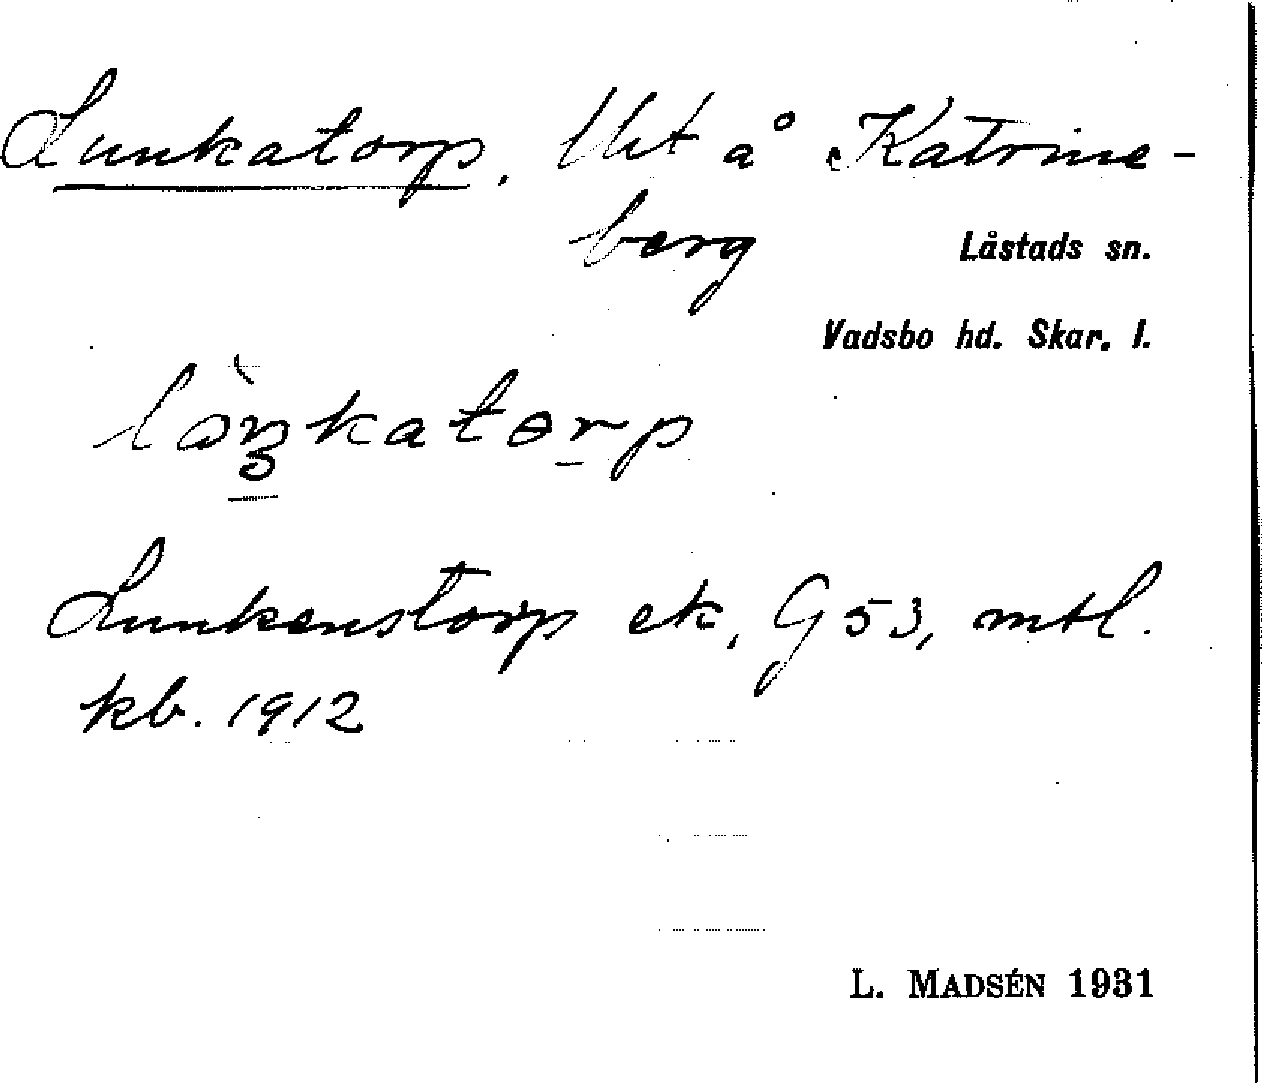 Lunkatorp. Uht å Katrine-
berg
Låstads sn.
Vadsbo hd. Skar. l.
Lunkenstorp ek, G 53, mtl.
kb. 1912
L. MADSÉN 1931